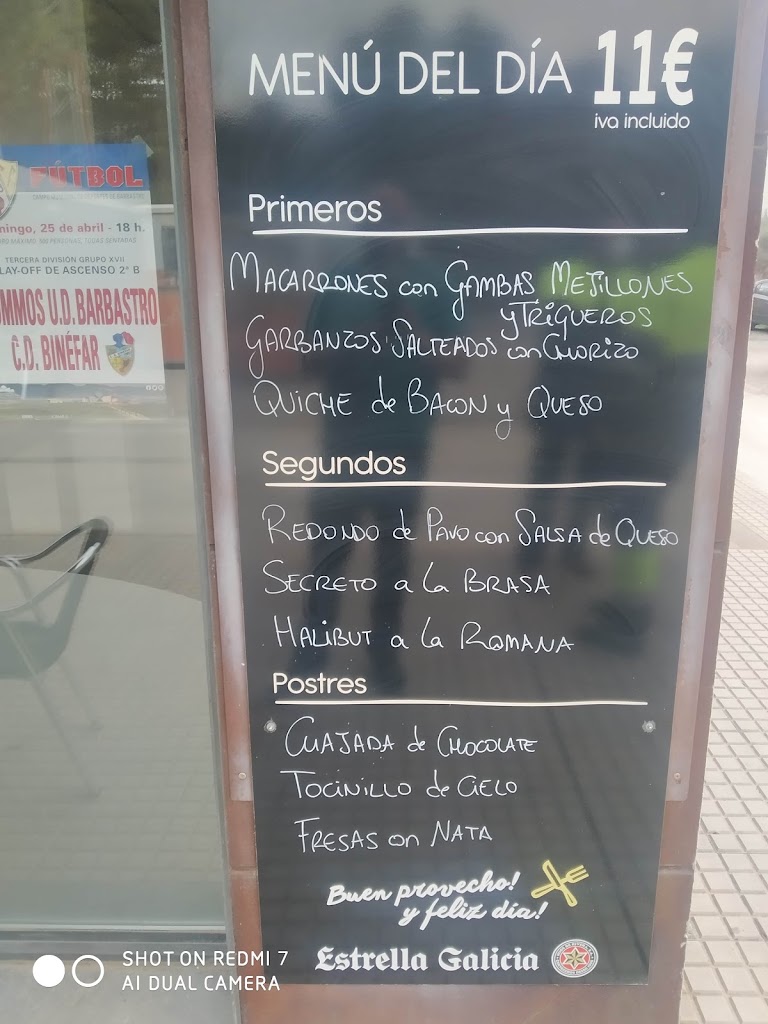 MENÚ DEL DÍA 11€
iva incluido
Primeros
MACARRONES con GAMBAS MEJILLONES
y TRIGUEROS
GARBANZOS SALTEADOS con CHORIZO
QUICHE de BACON y QUESO
Segundos
REDONDO de PAVO con SALSA de QUESO
SECRETO a la BRASA
HALIBUT a la ROMANA
Postres
CUAJADA de CHOCOLATE
TOCINILLO de CIELO
FRESAS con NATA
Buen provecho!
y feliz día!
Estrella Galicia
FÚTBOL
mingo, 25 de abril - 18 h.
TERCERA DIVISIÓN GRUPO XVII
LAY-OFF DE ASCENSO 2ª B
OMMOS U.D. BARBASTRO
C.D. BINÉFAR
SHOT ON REDMI 7
AI DUAL CAMERA